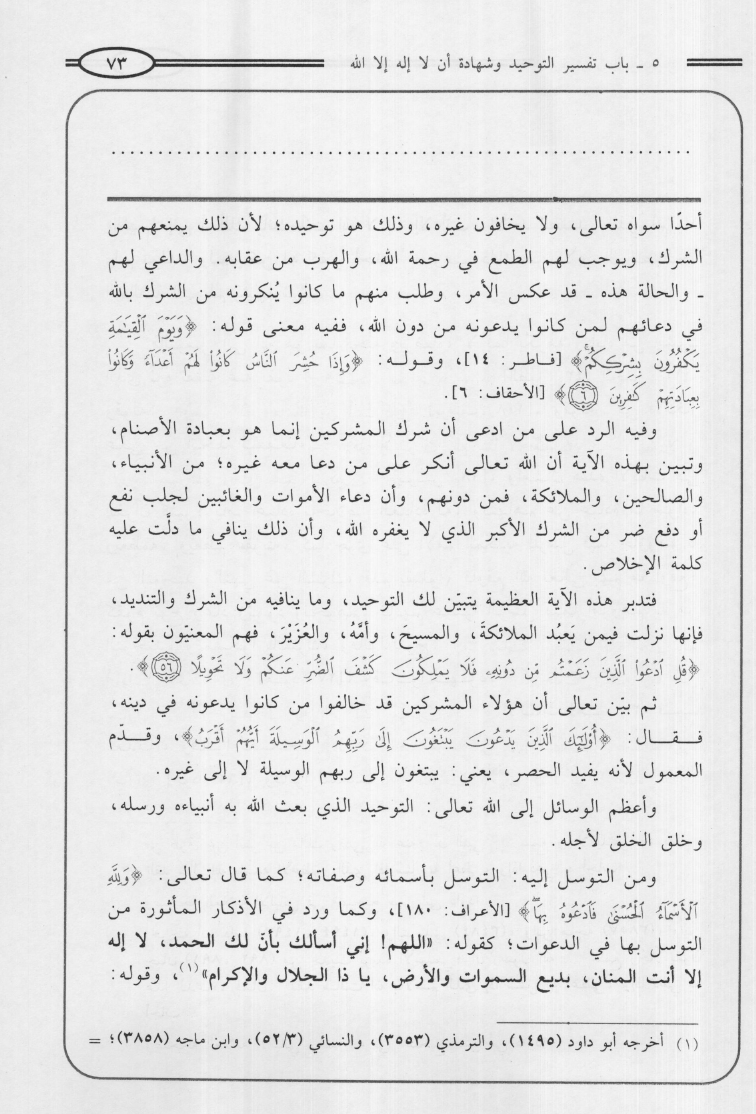 ٥ ـ باب تفسير التوحيد وشهادة أن لا إله إلا الله
٧٣
أحدًا سواه تعالى، ولا يخافون غيره، وذلك هو توحيده؛ لأن ذلك يمنعهم من
الشرك، ويوجب لهم الطمع في رحمة الله، والهرب من عقابه. والداعي لهم
ـ والحالة هذه ـ قد عكس الأمر، وطلب منهم ما كانوا يُنكرونه من الشرك بالله
في دعائهم لمن كانوا يدعونه من دون الله، ففيه معنى قوله: ﴿وَيَوْمَ ٱلْقِيَٰمَةِ
يَكْفُرُونَ بِشِرْكِكُمْ﴾ [فـاطـر: ١٤]، وقـولـه: ﴿وَإِذَا حُشِرَ ٱلنَّاسُ كَانُوا۟ لَهُمْ أَعْدَآءً وَكَانُوا۟
بِعِبَادَتِهِمْ كَٰفِرِينَ ٦﴾ [الأحقاف: ٦].
وفيه الرد على من ادعى أن شرك المشركين إنما هو بعبادة الأصنام،
وتبين بهذه الآية أن الله تعالى أنكر على من دعا معه غيره؛ من الأنبياء،
والصالحين، والملائكة، فمن دونهم، وأن دعاء الأموات والغائبين لجلب نفع
أو دفع ضر من الشرك الأكبر الذي لا يغفره الله، وأن ذلك ينافي ما دلَّت عليه
كلمة الإخلاص.
فتدبر هذه الآية العظيمة يتبيّن لك التوحيد، وما ينافيه من الشرك والتنديد،
فإنها نزلت فيمن يَعبُد الملائكةَ، والمسيحَ، وأمَّهُ، والعُزَيْرَ، فهم المعنيّون بقوله:
﴿قُلِ ٱدْعُوا۟ ٱلَّذِينَ زَعَمْتُم مِّن دُونِهِۦ فَلَا يَمْلِكُونَ كَشْفَ ٱلضُّرِّ عَنكُمْ وَلَا تَحْوِيلًا ٥٦﴾.
ثم بيّن تعالى أن هؤلاء المشركين قد خالفوا من كانوا يدعونه في دينه،
فـقـال: ﴿أُو۟لَٰٓئِكَ ٱلَّذِينَ يَدْعُونَ يَبْتَغُونَ إِلَىٰ رَبِّهِمُ ٱلْوَسِيلَةَ أَيُّهُمْ أَقْرَبُ﴾، وقـدّم
المعمول لأنه يفيد الحصر، يعني: يبتغون إلى ربهم الوسيلة لا إلى غيره.
وأعظم الوسائل إلى الله تعالى: التوحيد الذي بعث الله به أنبياءه ورسله،
وخلق الخلق لأجله.
ومن التوسل إليه: التوسل بأسمائه وصفاته؛ كما قال تعالى: ﴿وَلِلَّهِ
ٱلْأَسْمَآءُ ٱلْحُسْنَىٰ فَٱدْعُوهُ بِهَا﴾ [الأعراف: ١٨٠]، وكما ورد في الأذكار المأثورة من
التوسل بها في الدعوات؛ كقوله: «اللهم! إني أسألك بأنّ لك الحمد، لا إله
إلا أنت المنان، بديع السموات والأرض، يا ذا الجلال والإكرام»(١)، وقوله:
(١) أخرجه أبو داود (١٤٩٥)، والترمذي (٣٥٥٣)، والنسائي (٥٢/٣)، وابن ماجه (٣٨٥٨)؛ =